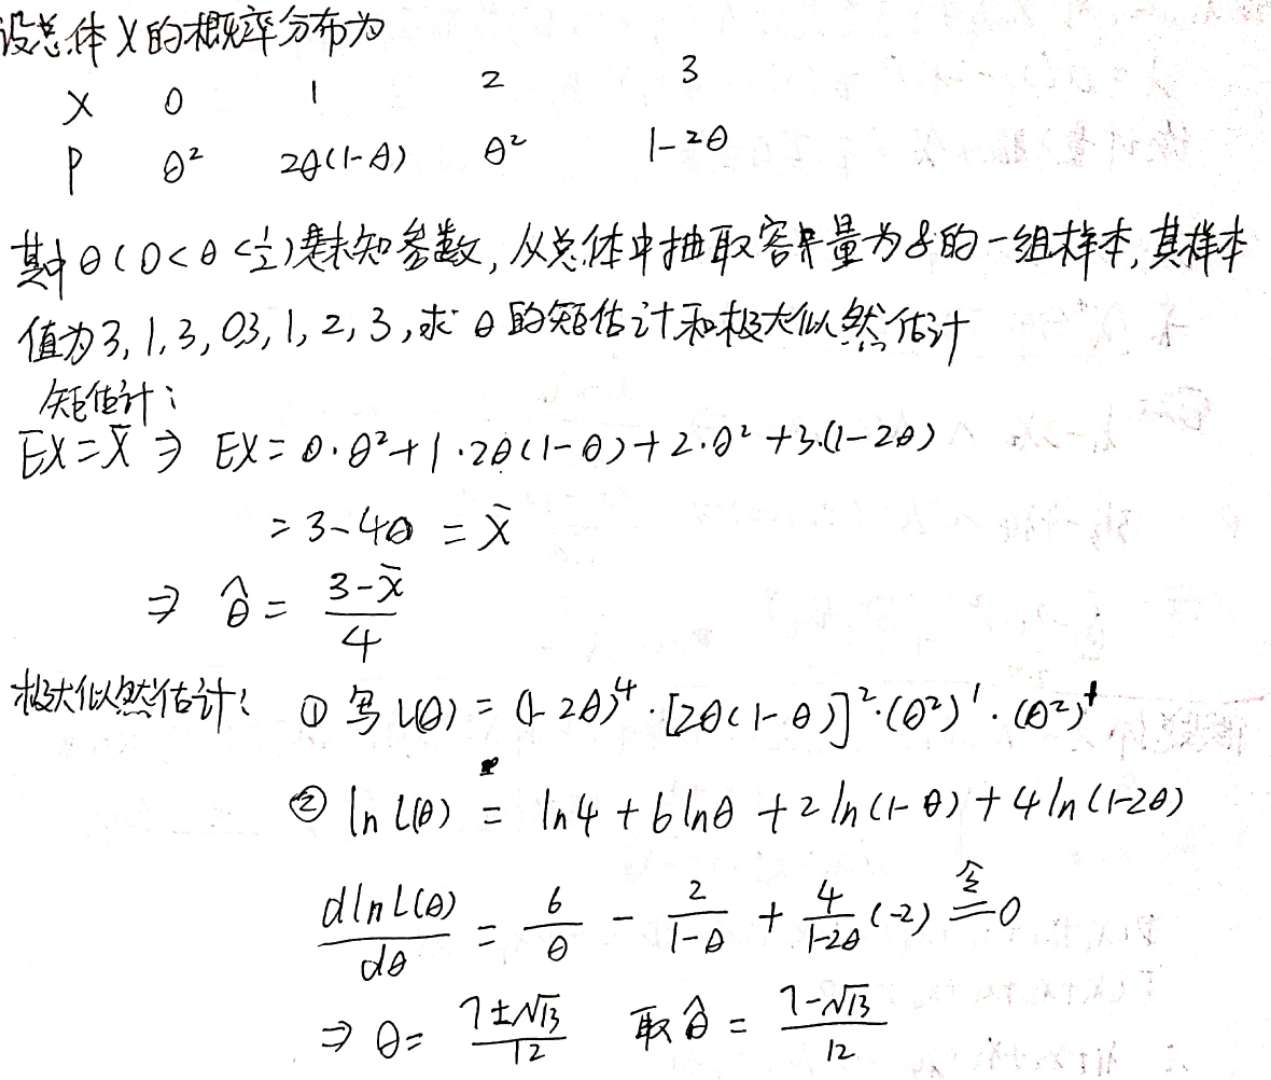 设总体X的概率分布为
X 0 1 2 3
P θ² 2θ(1-θ) θ² 1-2θ
其中θ(0<θ<1/2)是未知参数,从总体中抽取容量为8的一组样本,其样本
值为3,1,3,0,3,1,2,3,求θ的矩估计和极大似然估计
矩估计:
EX=X̄ ⇒ EX=0·θ²+1·2θ(1-θ)+2·θ²+3·(1-2θ)
=3-4θ=X̄
⇒ θ̂=(3-x̄)/4
极大似然估计: ①写L(θ)=(1-2θ)⁴·[2θ(1-θ)]²·(θ²)¹·(θ²)¹
② ln L(θ)=ln4+6lnθ+2ln(1-θ)+4ln(1-2θ)
dlnL(θ)/dθ=6/θ-2/(1-θ)+4/(1-2θ)(-2) 令=0
⇒ θ=(7±√13)/12 取θ̂=(7-√13)/12